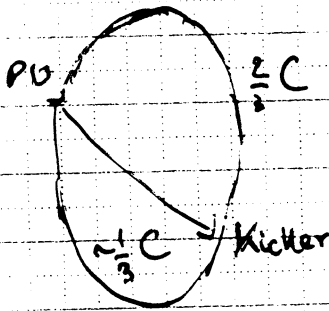 PU
⅔ C
~⅓ C
Kicker